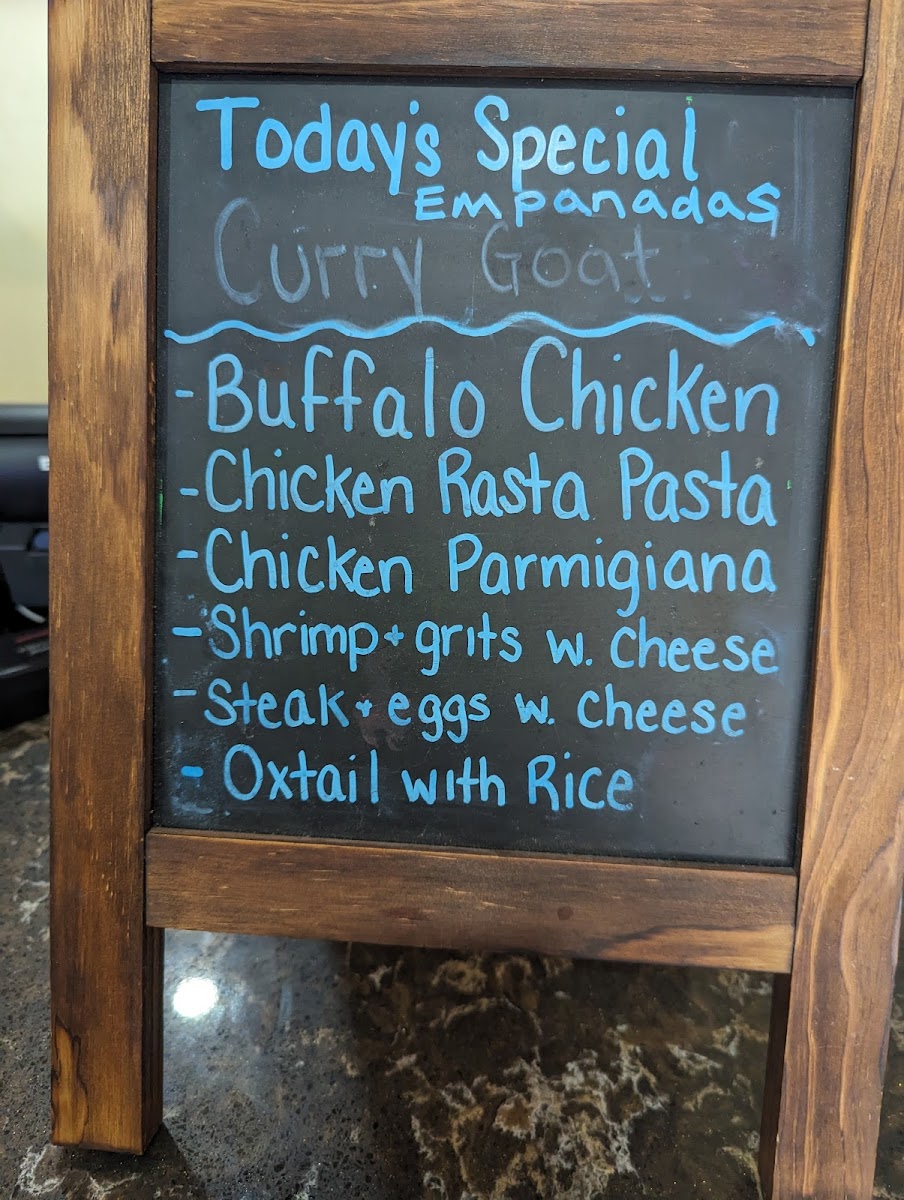 Today's Special
Empanadas
Curry Goat
- Buffalo Chicken
- Chicken Rasta Pasta
- Chicken Parmigiana
- Shrimp + grits w. cheese
- Steak + eggs w. cheese
- Oxtail with Rice